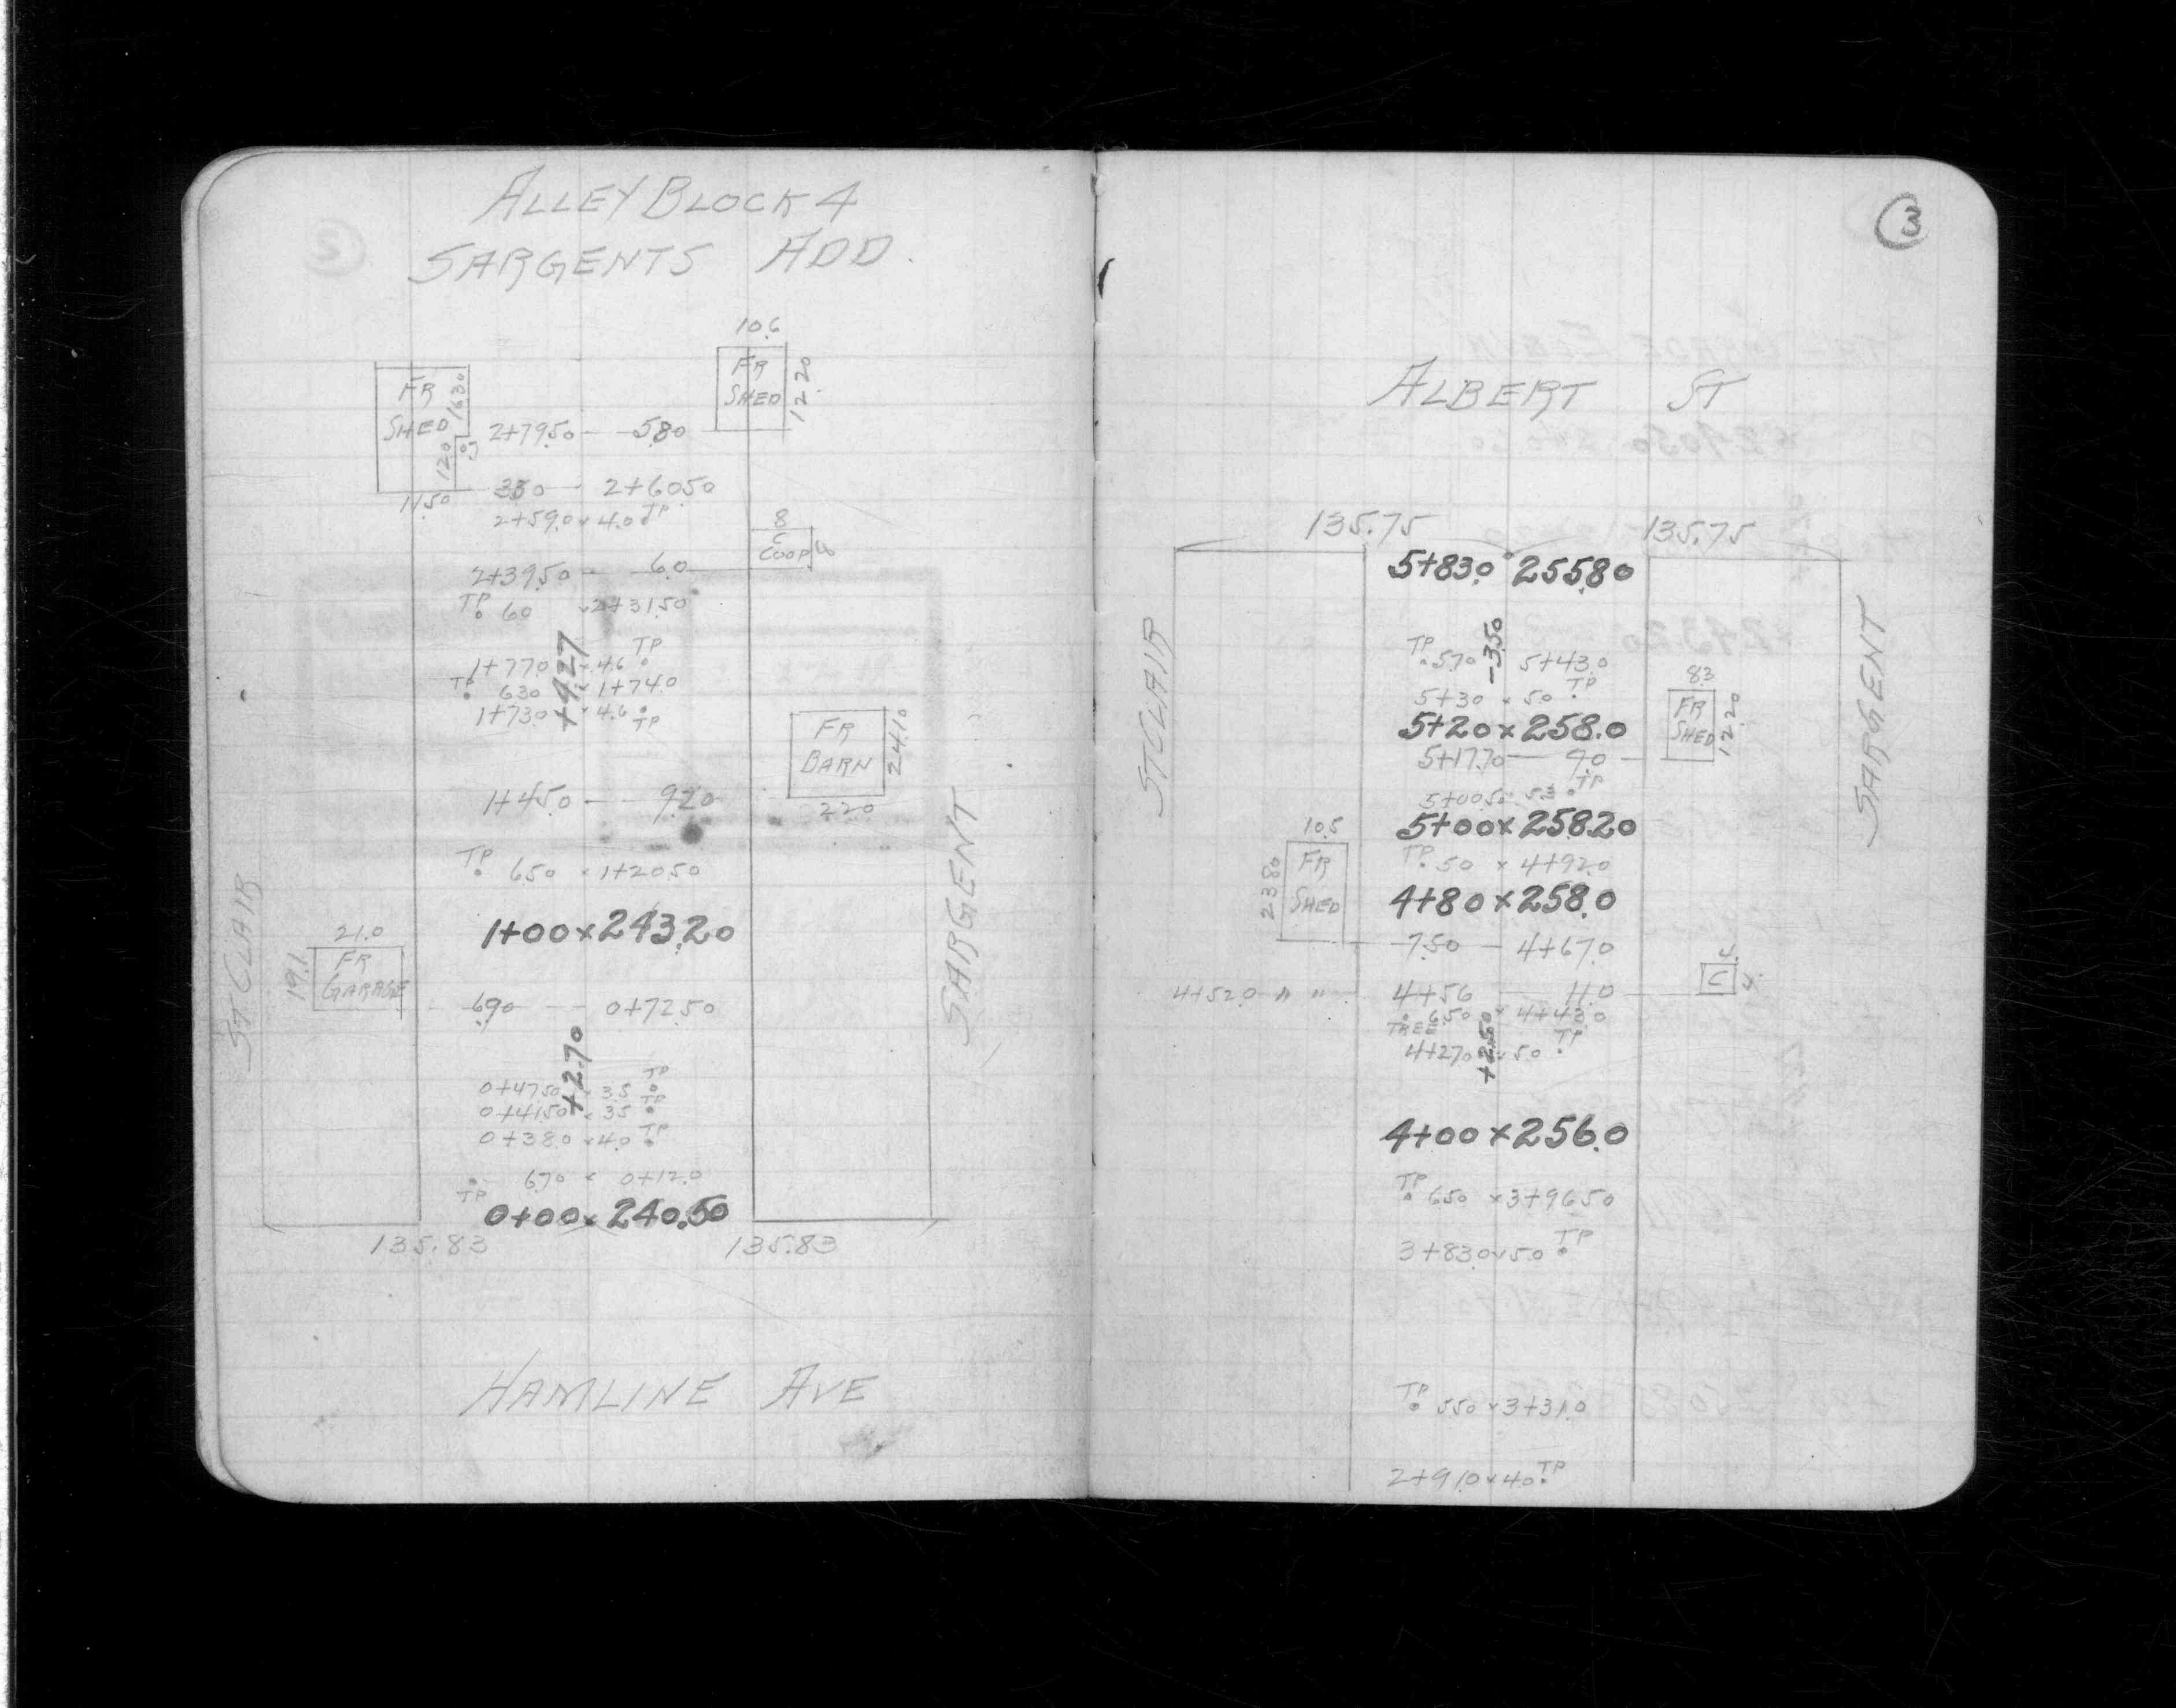 ALLEY BLOCK 4
SARGENTS ADD.
10.6
FR
SHED
12.20
FR
SHED
16.30
12.0
2+79.50 — 5.80
11.50
3.30 — 2+60.50
2+59.0 x 4.0 TP
8
C
COOP
2+39.50 — 6.0
TP 6.0 x 2+31.50
+4.27
1+77.0 x 4.6 TP
TP 6.30 x 1+74.0
1+73.0 x 4.6 TP
FR
BARN
24.10
22.0
1+45.0 — 9.20
TP 6.50 x 1+20.50
1+00 x 243.20
ST CLAIR
SARGENT
21.0
19.1
FR
GARAGE
6.90 — 0+72.50
+2.70
0+47.50 x 3.5 TP
0+41.50 x 3.5 TP
0+38.0 x 4.0 TP
TP 6.70 x 0+12.0
0+00 x 240.50
135.83 135.83
HAMLINE AVE
3
ALBERT ST
135.75 135.75
5+83.0 255.80
ST CLAIR
SARGENT
-3.50
TP 5.70 5+43.0
5+30 x 5.0 TP
8.3
FR
SHED
12.20
5+20 x 258.0
5+17.70 — 9.0
5+00.50 x 5.3 TP
5+00 x 258.20
10.5
FR
SHED
23.80
TP 5.0 x 4+92.0
4+80 x 258.0
7.50 — 4+67.0
4+52.0 " "
4+56 — 11.0
4.
C
4.
TREE 6.50 x 4+43.0
4+27.0 x 5.0 TP
+2.50
4+00 x 256.0
TP 6.50 x 3+96.50
3+83.0 x 5.0 TP
TP 5.50 x 3+31.0
2+91.0 x 4.0 TP